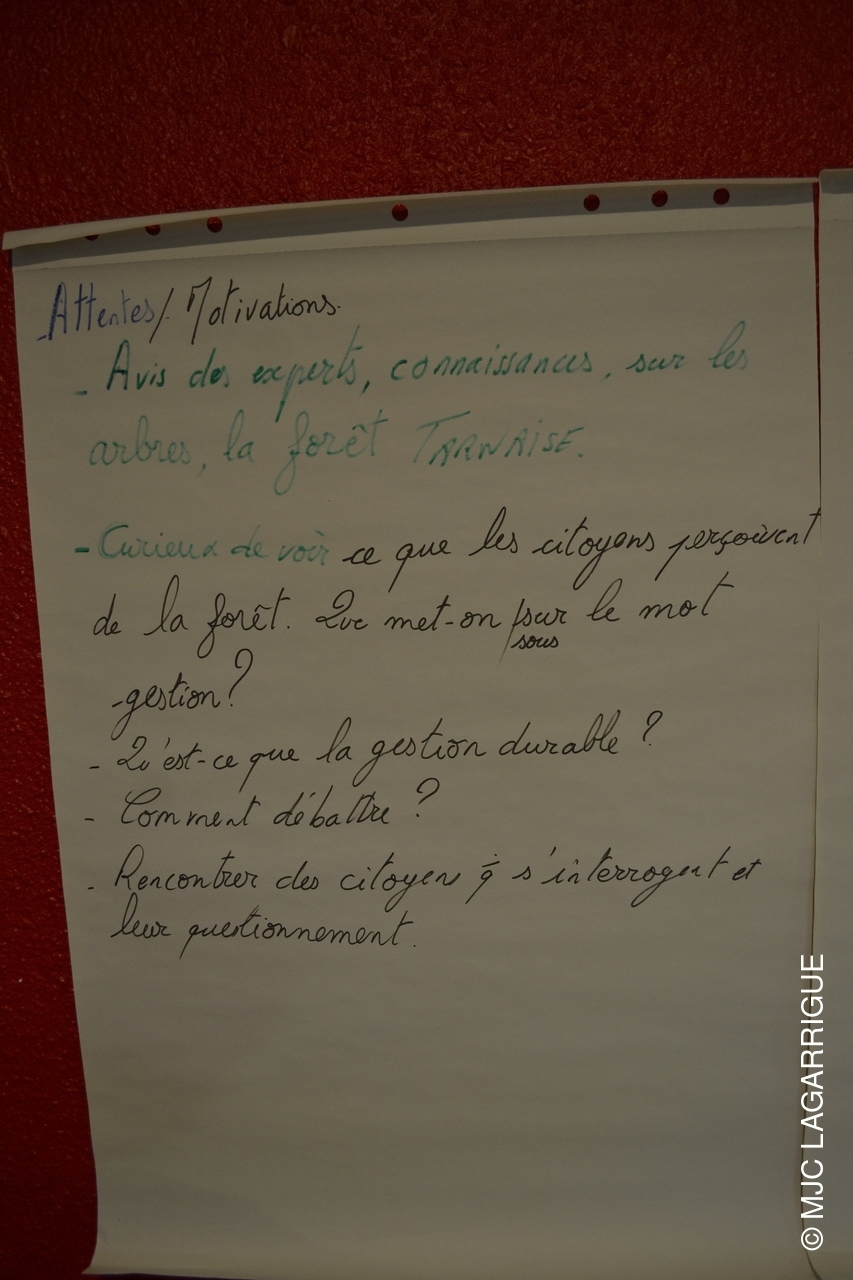 Attentes / Motivations.
- Avis des experts, connaissances, sur les
arbres, la forêt TARNAISE.
- Curieux de voir ce que les citoyens perçoivent
de la forêt. Que met-on /sur le mot
sous
gestion ?
- Qu'est-ce que la gestion durable ?
- Comment débattre ?
- Rencontrer des citoyens q̇ s'interrogent et
leur questionnement.
© MJC LAGARRIGUE